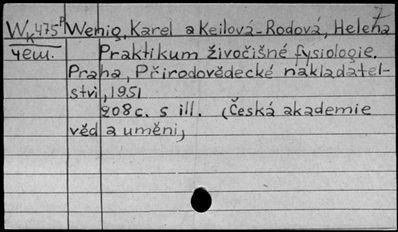 7
Wκ475ᴾ Wenig, Karel a Keilová-Rodová, Helena
чеш. Praktikum živočišné fysiologie.
Praha, Přírodovědecké nakladatel-
ství, 1951
208 c. s ill. (Česká akademie
věd a umění)